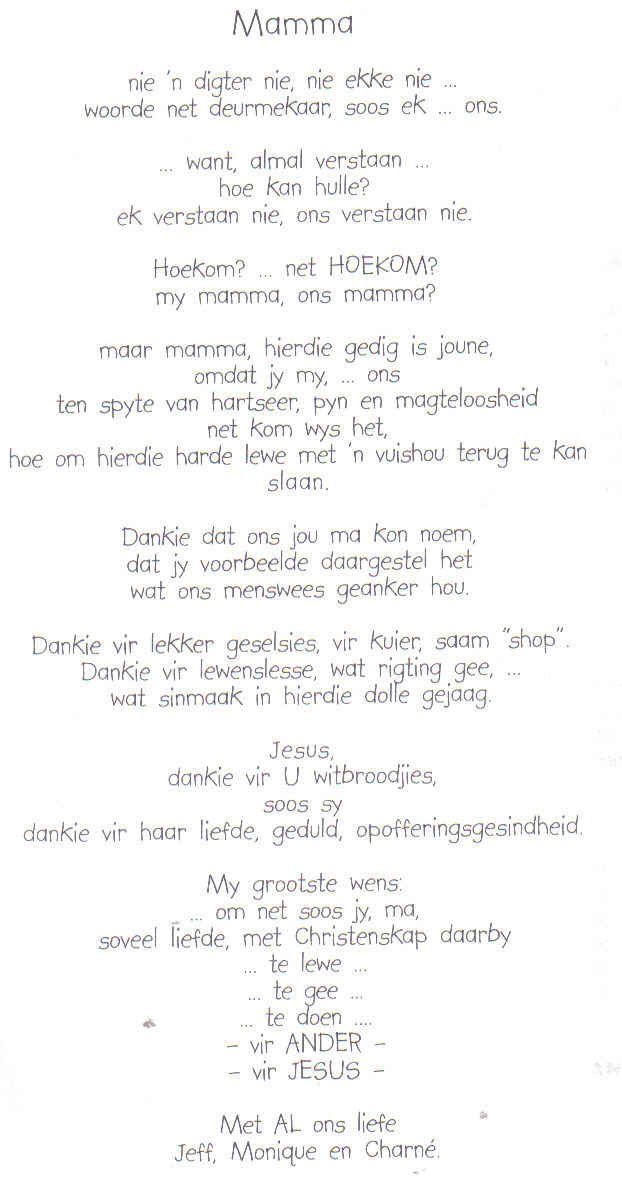 Mamma
nie 'n digter nie, nie ekke nie ...
woorde net deurmekaar, soos ek ... ons.
... want, almal verstaan ...
hoe kan hulle?
ek verstaan nie, ons verstaan nie.
Hoekom? ... net HOEKOM?
my mamma, ons mamma?
maar mamma, hierdie gedig is joune,
omdat jy my, ... ons
ten spyte van hartseer, pyn en magteloosheid
net kom wys het,
hoe om hierdie harde lewe met 'n vuishou terug te kan
slaan.
Dankie dat ons jou ma kon noem,
dat jy voorbeelde daargestel het
wat ons menswees geanker hou.
Dankie vir lekker geselsies, vir kuier, saam "shop".
Dankie vir lewenslesse, wat rigting gee, ...
wat sinmaak in hierdie dolle gejaag.
Jesus,
dankie vir U witbroodjies,
soos sy
dankie vir haar liefde, geduld, opofferingsgesindheid.
My grootste wens:
... om net soos jy, ma,
soveel liefde, met Christenskap daarby
... te lewe ...
... te gee ...
... te doen ....
– vir ANDER –
– vir JESUS –
Met AL ons liefe
Jeff, Monique en Charné.